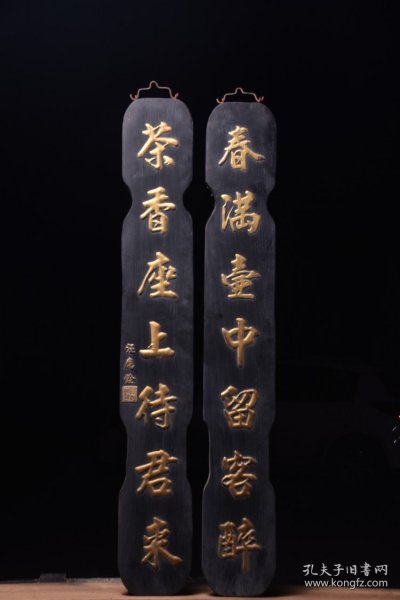 春满壶中留客醉
茶香座上待君来
孔夫子旧书网
www.kongfz.com